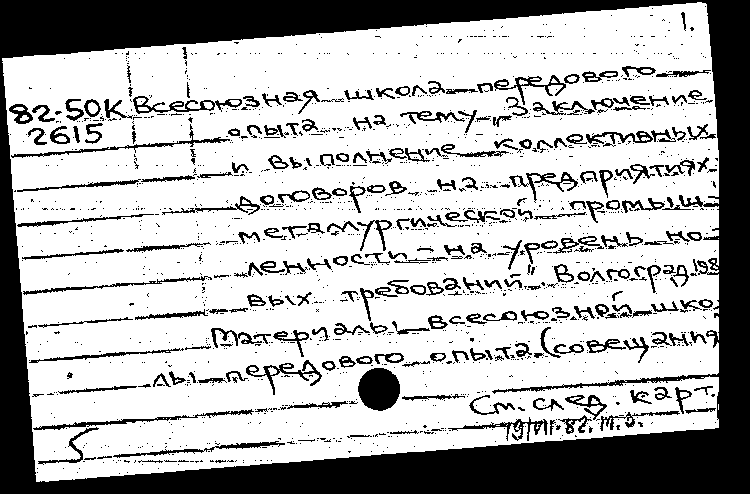 1.
82-50К Всесоюзная школа передового
2615 опыта на тему „Заключение
и выполнение коллективных
договоров на предприятиях
металлургической промыш-
ленности - на уровень но-
вых требований". Волгоград, 198
Материалы всесоюзной шко-
лы передового опыта (совещания
См. след. карт.
5 19/VII-82. м.о.